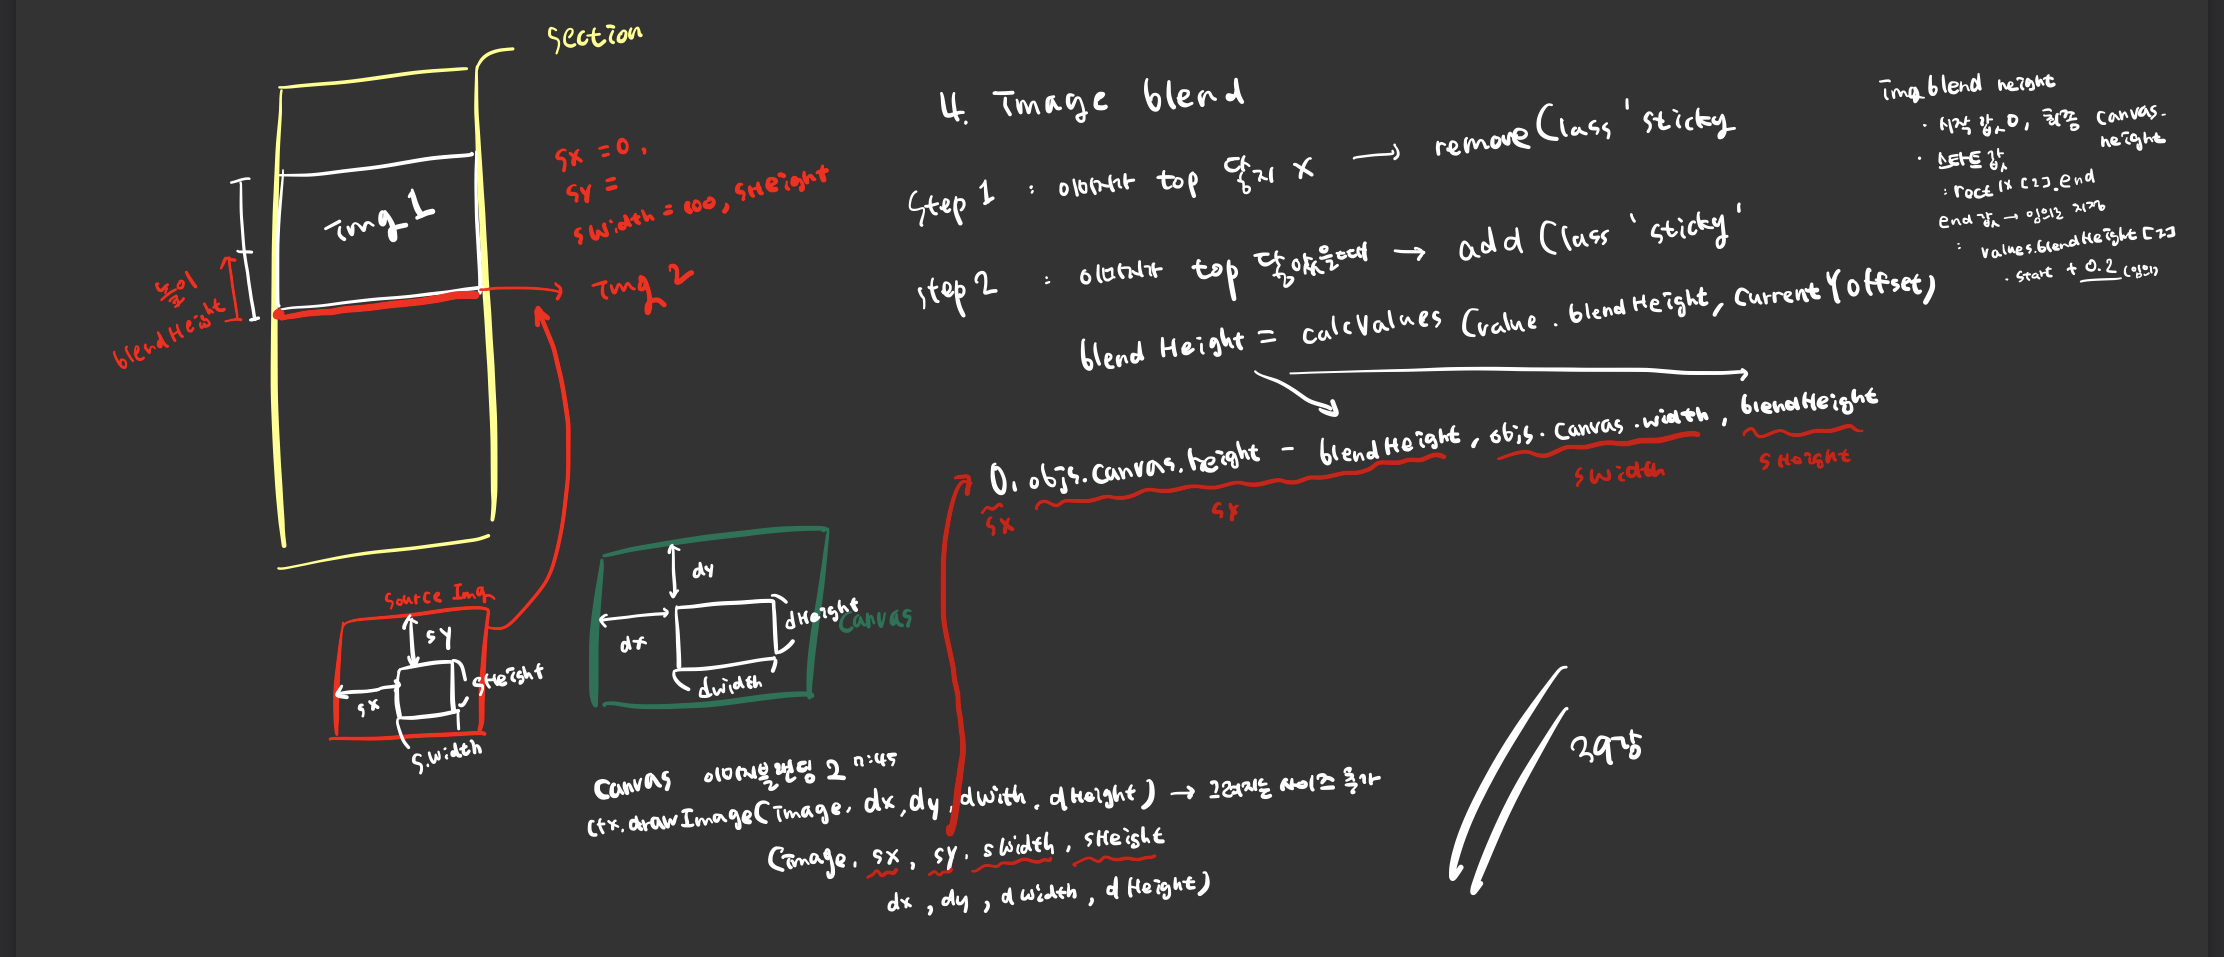 section
Img 1
sx = 0,
sy =
swidth = 600, sHeight
Img 2
높이
blendHeight
Source Img
sy
sHeight
sx
s.width
dy
dx
dHeight
dwidth
Canvas
4. Image blend
Step 1 : 이미지가 top 닿지 X → removeClass 'sticky
step 2 : 이미지가 top 닿았을때 → add Class 'sticky'
blend Height = calcValues (value . blendHeight, CurrentYoffset)
0, objs.canvas.height - blendHeight, objs. Canvas .width, blendHeight
sx
sy
swidth
sHeight
Img blend height
· 시작 값 0, 최종 Canvas.
height
· 스타트 값
: rect 1X [2].end
end 값 → 임의로 지정
: values.blendHeight [2]
. start + 0.2 (임의)
Canvas 이미지블렌딩 2 7:45
ctx.drawImage(Image, dx, dy, dwith, dHeight) → 그려지는 사이즈
(Image, sx, sy, swidth, sHeight
dx, dy, dwidth, dHeight)
39강